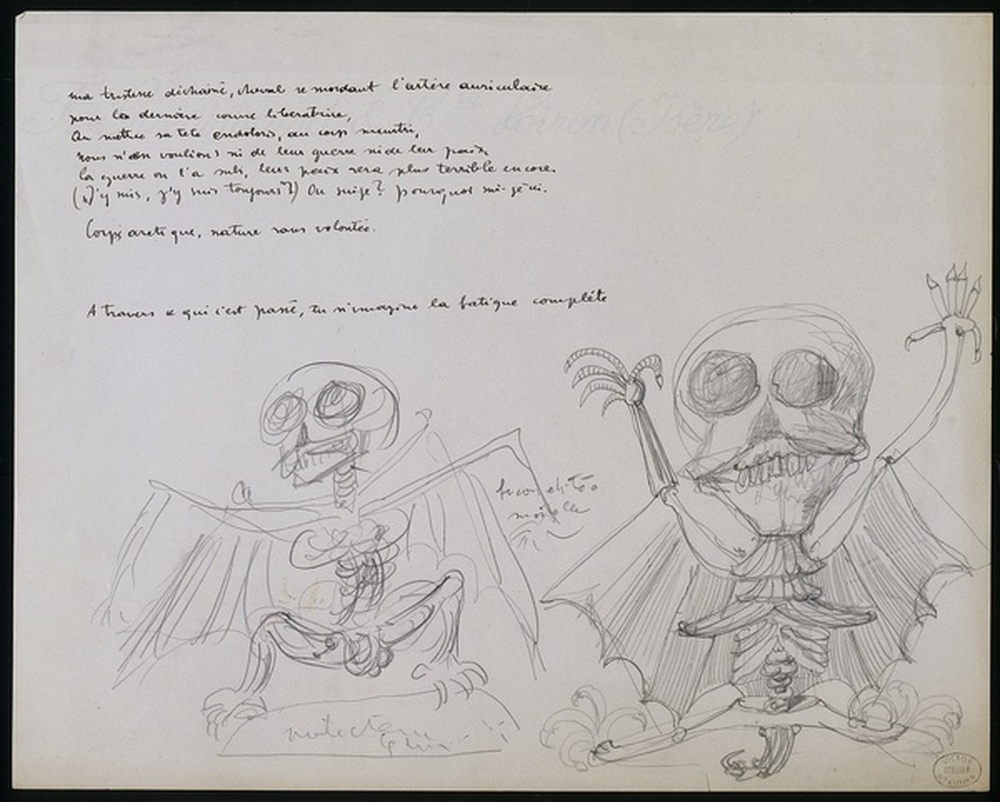 ma tristesse déchainé, cheval se mordant l'artère auriculaire
pour la dernière course liberatrice,
Au maitre sa tete endoloris, au corps meurtri,
nous n'en voulions ni de leur guerre ni de leur paix
la guerre on l'a subi, leur paix sera plus terrible encore.
(J'y suis, j'y suis toujours?) Ou suis-je? pourquoi suis-je ici.
Corps arctique, nature sans volontée.
A travers ce qui c'est passé, tu n'imagine la fatigue complète
(Isère)
VICTOR
ATELIER
BRAUNER